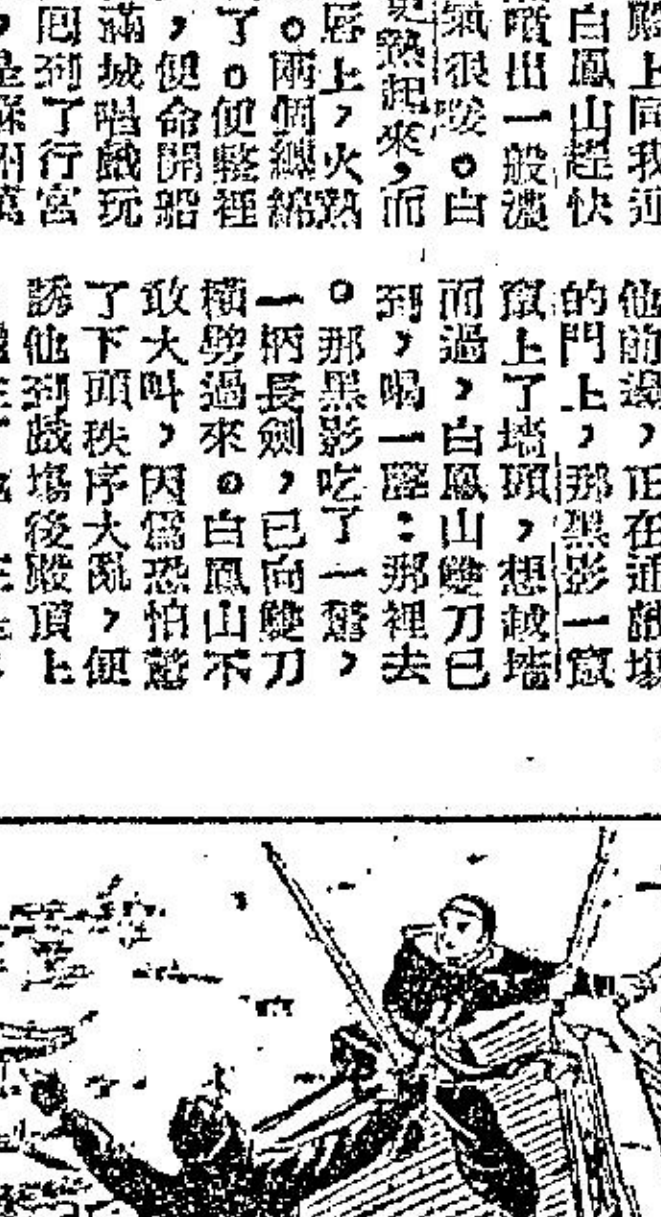 上同我
白鳳山趕快
噴出一般濃
氣很暖。白
熱起來,而
唇上,火熱
。兩個纏綿
了。便整裡
,便命開船
滿城唱戲玩
回到了行宮
他前邊,正在近戲場
的門上,那黑影一竄
竄上了墻頭,想越墻
而過,白鳳山雙刀已
到,喝一聲:那裡去
。那黑影吃了一驚,
一柄長劍,已向雙刀
橫劈過來。白鳳山不
敢大叫,因爲恐怕驚
了下頭秩序大亂,便
誘他到戲場後殿頂上